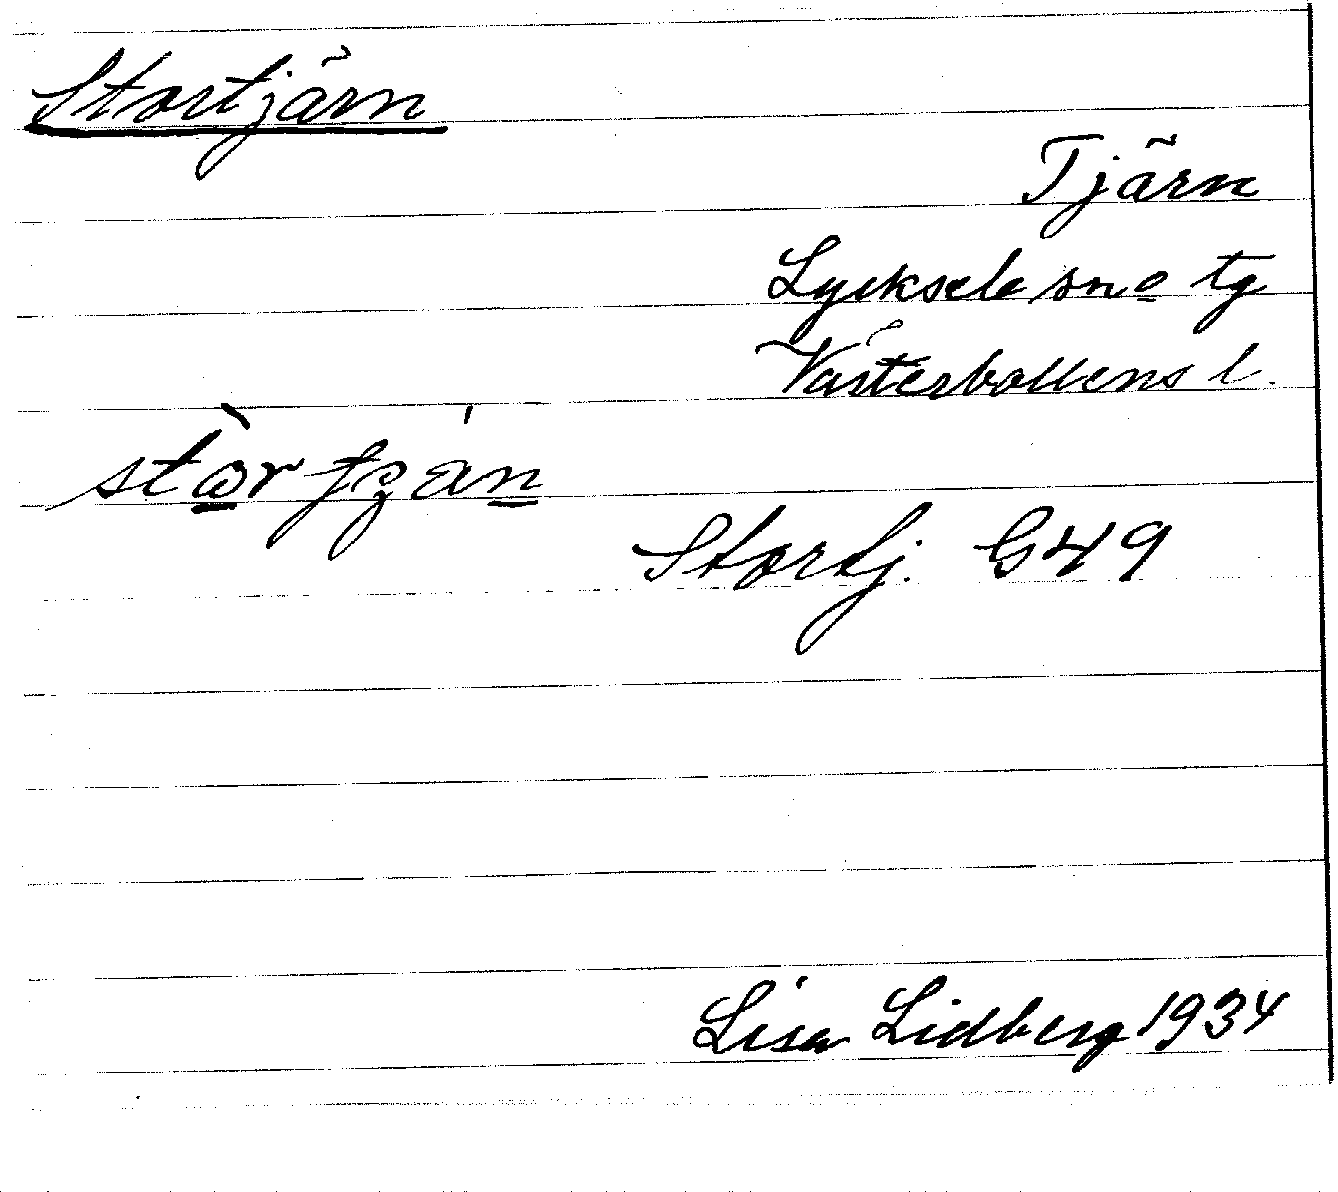 Stortjärn
Tjärn
Lycksele sn o tg
Västerbottens l.
Stortj. G49
Lisa Lidberg 1934